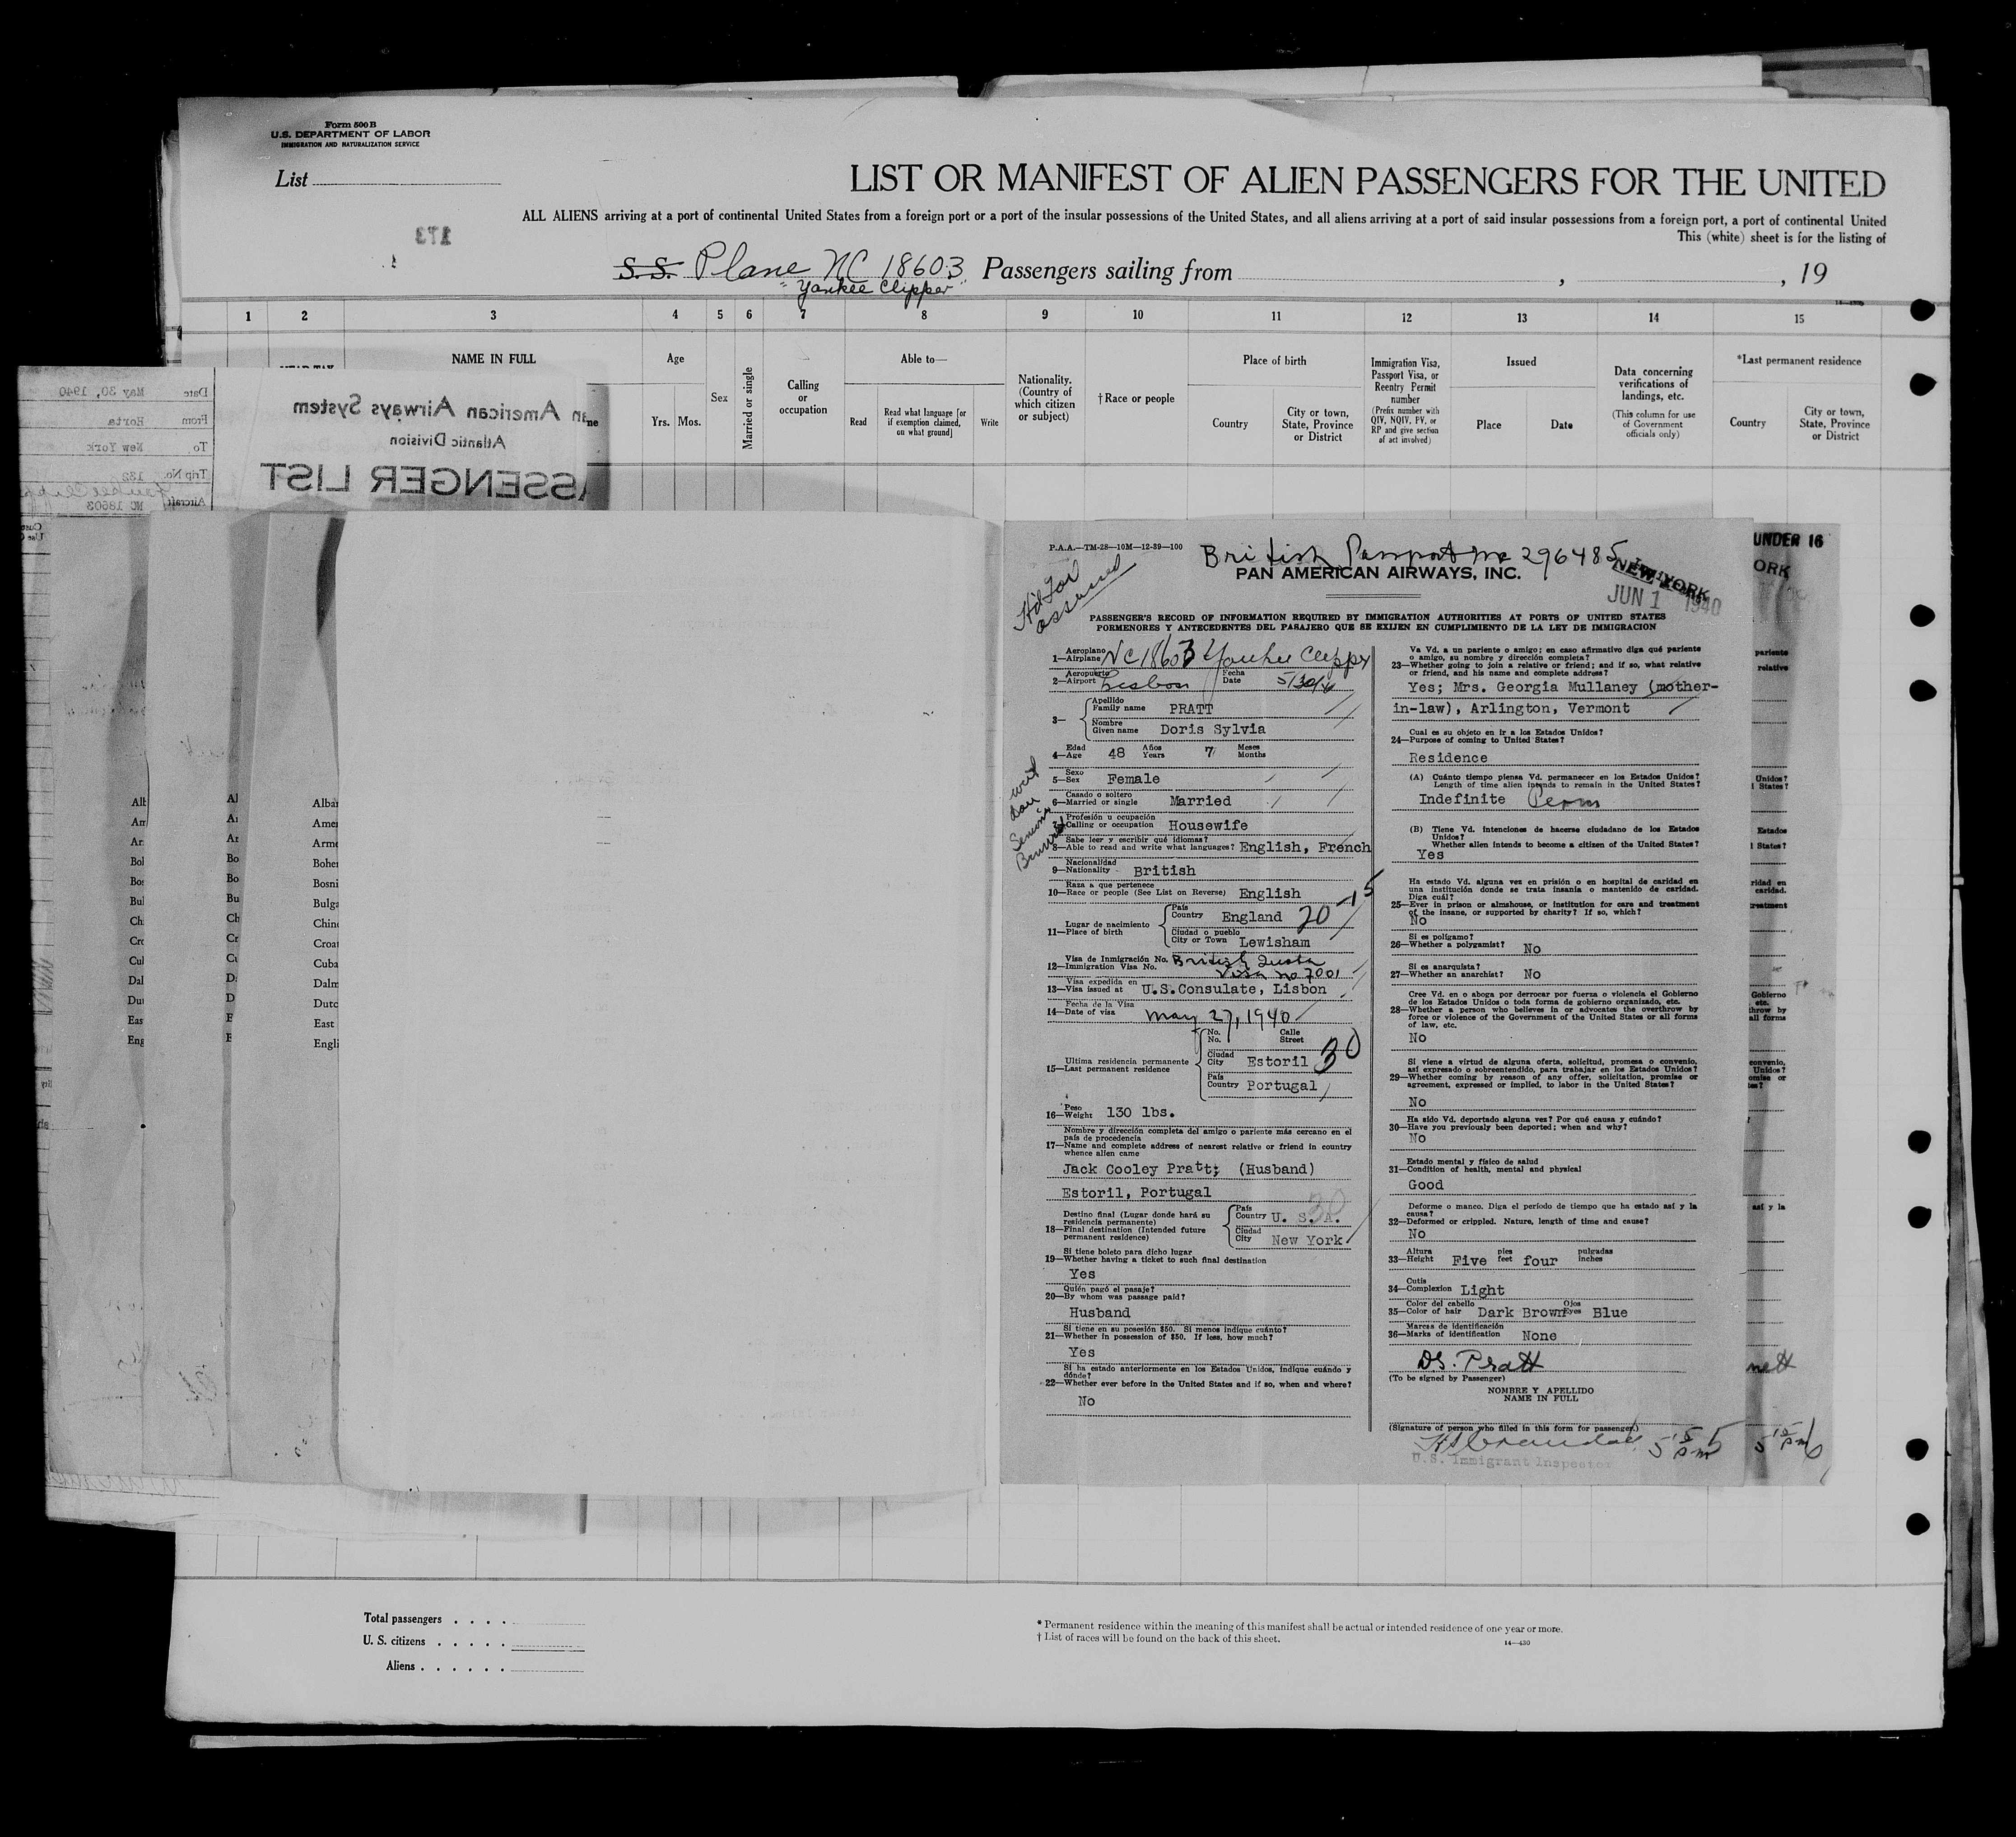 Form 500 B
U.S. DEPARTMENT OF LABOR
IMMIGRATION AND NATURALIZATION SERVICE
List
LIST OR MANIFEST OF ALIEN PASSENGERS FOR THE UNITED
ALL ALIENS arriving at a port of continental United States from a foreign port or a port of the insular possessions of the United States, and all aliens arriving at a port of said insular possessions from a foreign port, a port of continental United
This (white) sheet is for the listing of
173
S.S. Plane NC 18603 Passengers sailing from , , 19
"Yankee Clipper"
1 2 3 4 5 6 7 8 9 10 11 12 13 14 15
NAME IN FULL
Age
Yrs. Mos.
Sex
Married or single
Calling or occupation
Able to—
Read
Read what language [or if exemption claimed, on what ground]
Write
Nationality. (Country of which citizen or subject)
† Race or people
Place of birth
Country
City or town, State, Province or District
Immigration Visa, Passport Visa, or Reentry Permit number
(Prefix number with QIV, NQIV, PV, or RP and give section of act involved)
Issued
Place
Date
Data concerning verifications of landings, etc.
(This column for use of Government officials only)
*Last permanent residence
Country
City or town, State, Province or District
Date May 30, 1940
From Horta
To New York
Trip No. 132
Aircraft NC 18603
an American Airways System
Atlantic Division
ASSENGER LIST
Alb Al Alban
Am Ar Amer
Ar Ar Arme
Bol Bo Bohe
Bos Bo Bosni
Bul Bu Bulga
Ch Ch Chin
Cro Cr Croat
Cul Cu Cuba
Dal Da Dalm
Dut D Dutc
Eas E East
Eng E Engli
P.A.A.—TM-28—10M—12-39—100
British Passport No 296485
PAN AMERICAN AIRWAYS, INC.
NEW YORK
JUN 1 1940
PASSENGER'S RECORD OF INFORMATION REQUIRED BY IMMIGRATION AUTHORITIES AT PORTS OF UNITED STATES
PORMENORES Y ANTECEDENTES DEL PASAJERO QUE SE EXIJEN EN CUMPLIMIENTO DE LA LEY DE IMMIGRACION
Aeroplano
1—Airplane NC 18603 Yankee Clipper
Aeropuerto Fecha
2—Airport Lisbon Date 5/30/40
Apellido
3— Family name PRATT
Nombre
Given name Doris Sylvia
Edad Años Meses
4—Age 48 Years 7 Months
Sexo
5—Sex Female
Casado o soltero
6—Married or single Married
Profesión u ocupación
Calling or occupation Housewife
Sabe leer y escribir qué idiomas?
8—Able to read and write what languages? English, French
Nacionalidad
9—Nationality British
Raza a que pertenece
10—Race or people (See List on Reverse) English
País
Country England 20-15
Lugar de nacimiento
11—Place of birth
Ciudad o pueblo
City or Town Lewisham
Visa de Inmigración No. British Quota
12—Immigration Visa No. Visa no 7001
Visa expedida en
13—Visa issued at U.S.Consulate, Lisbon
Fecha de la Visa
14—Date of visa May 27, 1940
No. Calle
No. Street
Ultima residencia permanente
15—Last permanent residence
Ciudad
City Estoril 30
País
Country Portugal
Peso
16—Weight 130 lbs.
Nombre y dirección completa del amigo o pariente más cercano en el
país de procedencia
17—Name and complete address of nearest relative or friend in country
whence alien came
Jack Cooley Pratt; (Husband)
Estoril, Portugal
Destino final (Lugar donde hará su
residencia permanente)
18—Final destination (Intended future
permanent residence)
País
Country U. S. A. 30
Ciudad
City New York
Si tiene boleto para dicho lugar
19—Whether having a ticket to such final destination
Yes
Quién pagó el pasaje?
20—By whom was passage paid?
Husband
Si tiene en su posesión $50. Si menos indique cuánto?
21—Whether in possession of $50. If less, how much?
Yes
Si ha estado anteriormente en los Estados Unidos, indique cuándo y
dónde?
22—Whether ever before in the United States and if so, when and where?
No
Va Vd. a un pariente o amigo; en caso afirmativo diga qué pariente
o amigo, su nombre y dirección completa?
23—Whether going to join a relative or friend; and if so, what relative
or friend, and his name and complete address?
Yes; Mrs. Georgia Mullaney (mother-
in-law), Arlington, Vermont
Cual es su objeto en ir a los Estados Unidos?
24—Purpose of coming to United States?
Residence
(A) Cuánto tiempo piensa Vd. permanecer en los Estados Unidos?
Length of time alien intends to remain in the United States?
Indefinite Perm
(B) Tiene Vd. intenciones de hacerse ciudadano de los Estados
Unidos?
Whether alien intends to become a citizen of the United States?
Yes
Ha estado Vd. alguna vez en prisión o en hospital de caridad en
una institución donde se trata insania o mantenido de caridad.
Diga cuál?
25—Ever in prison or almshouse, or institution for care and treatment
of the insane, or supported by charity? If so, which?
No
Si es polígamo?
26—Whether a polygamist? No
Si es anarquista?
27—Whether an anarchist? No
Cree Vd. en o aboga por derrocar por fuerza o violencia el Gobierno
de los Estados Unidos o toda forma de gobierno organizado, etc.
28—Whether a person who believes in or advocates the overthrow by
force or violence of the Government of the United States or all forms
of law, etc.
No
Si viene a virtud de alguna oferta, solicitud, promesa o convenio,
así expresado o sobreentendido, para trabajar en los Estados Unidos?
29—Whether coming by reason of any offer, solicitation, promise or
agreement, expressed or implied, to labor in the United States?
No
Ha sido Vd. deportado alguna vez? Por qué causa y cuándo?
30—Have you previously been deported; when and why?
No
Estado mental y físico de salud
31—Condition of health, mental and physical
Good
Deforme o manco. Diga el período de tiempo que ha estado así y la
causa?
32—Deformed or crippled. Nature, length of time and cause?
No
Altura pies pulgadas
33—Height Five feet four inches
Cutis
34—Complexion Light
Color del cabello Ojos
35—Color of hair Dark Brown Eyes Blue
Marcas de identificación
36—Marks of identification None
DS. Pratt
(To be signed by Passenger)
NOMBRE Y APELLIDO
NAME IN FULL
(Signature of person who filled in this form for passenger.)
U.S. Immigrant Inspector
UNDER 16
ORK
pariente
relative
Unidos?
l States?
Estados
l States?
ridad en
caridad.
treatment
Gobierno
etc.
throw by
all forms
convenio,
Unidos?
omise or
tes?
así y la
Total passengers
U. S. citizens
Aliens
* Permanent residence within the meaning of this manifest shall be actual or intended residence of one year or more.
† List of races will be found on the back of this sheet.
14—430